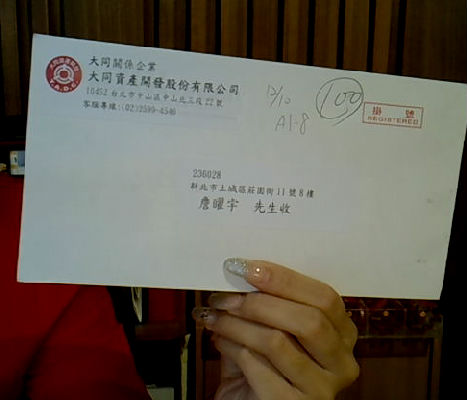 大同關係企業
大同資產開發股份有限公司
10452 台北市中山區中山北三段22號
客服專線:(02)2599-4540
12/10
A1-8
100
掛號
REGISTERED
236028
新北市土城區莊園街11號8樓
詹曜宇 先生收